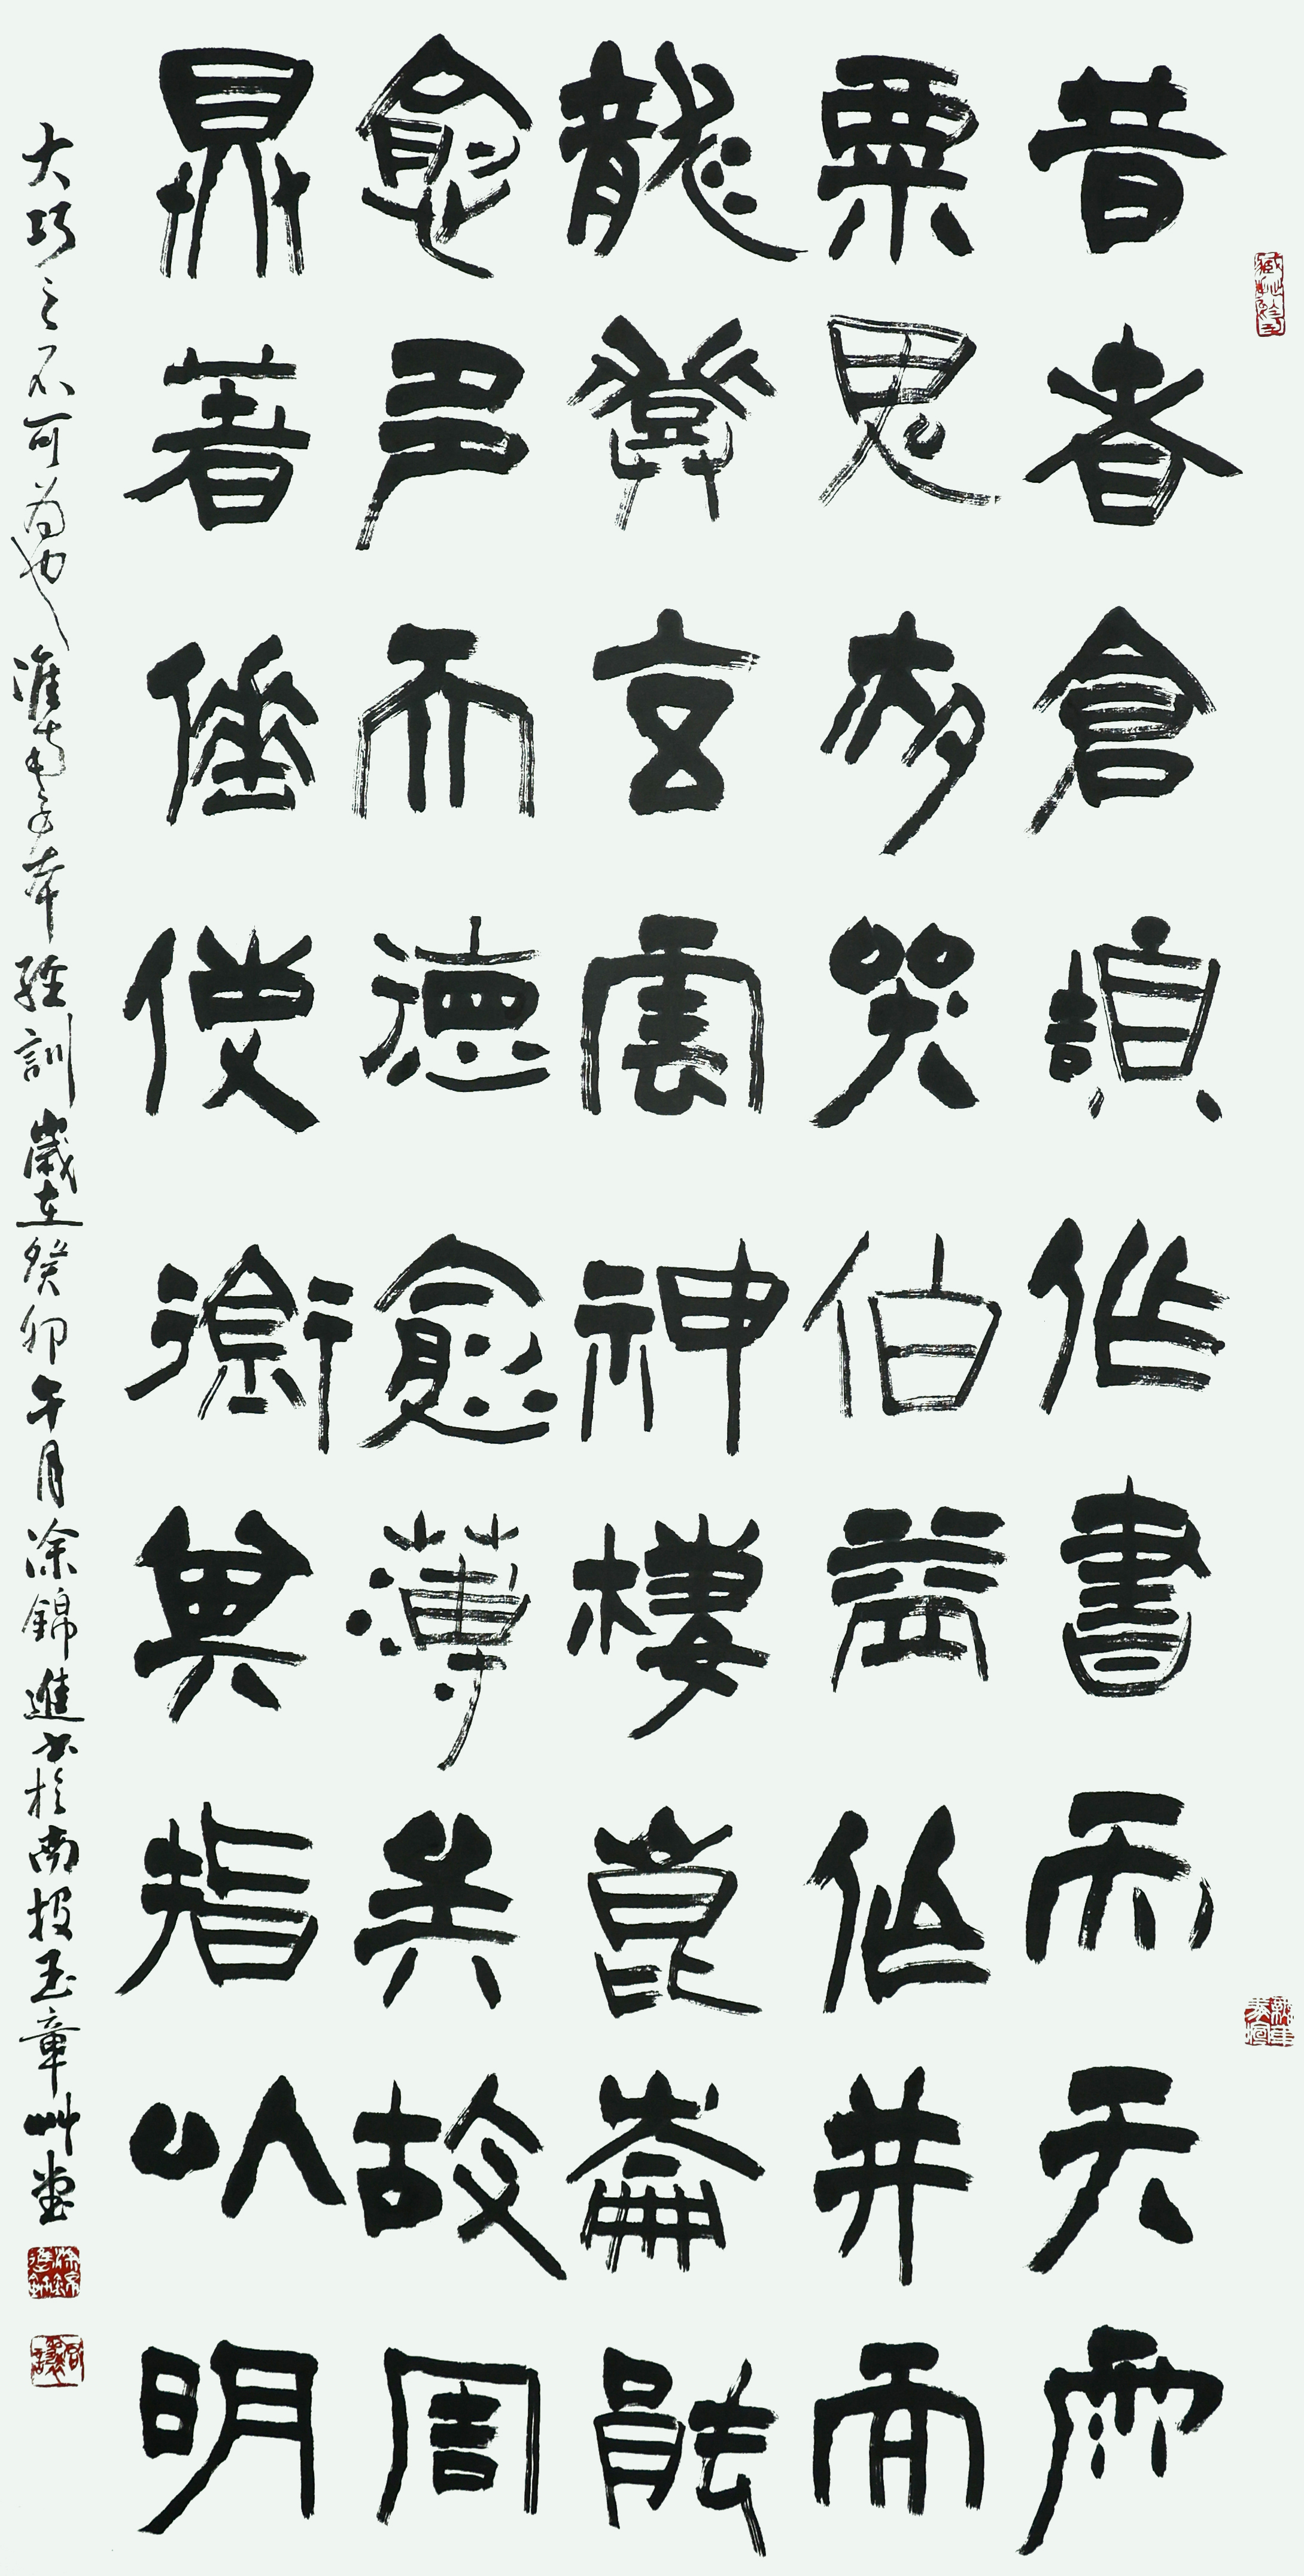 昔者倉頡作書而天雨
粟鬼夜哭伯益作井而
龍登玄雲神棲崑崙能
愈多而德愈薄矣故周
鼎著倕使銜其指以明
大巧之不可為也淮南子本經訓歲在癸卯午月涂錦進書於南投玉章艸堂